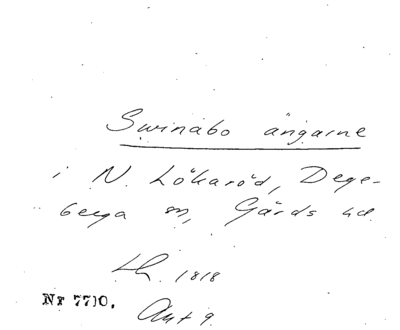 Swinabo ängarne
i N. Lökaröd, Dege-
berga sn, Gärds hd.
Lh. 1818
Nr 7710.
Akt 9.